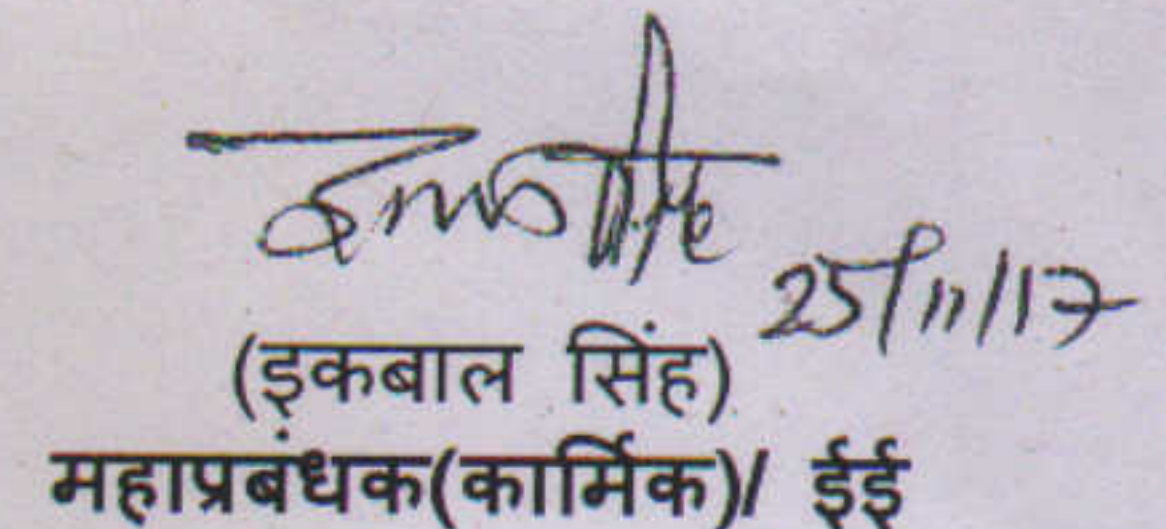 25/11/17
(इकबाल सिंह)
महाप्रबंधक(कार्मिक)/ ईई